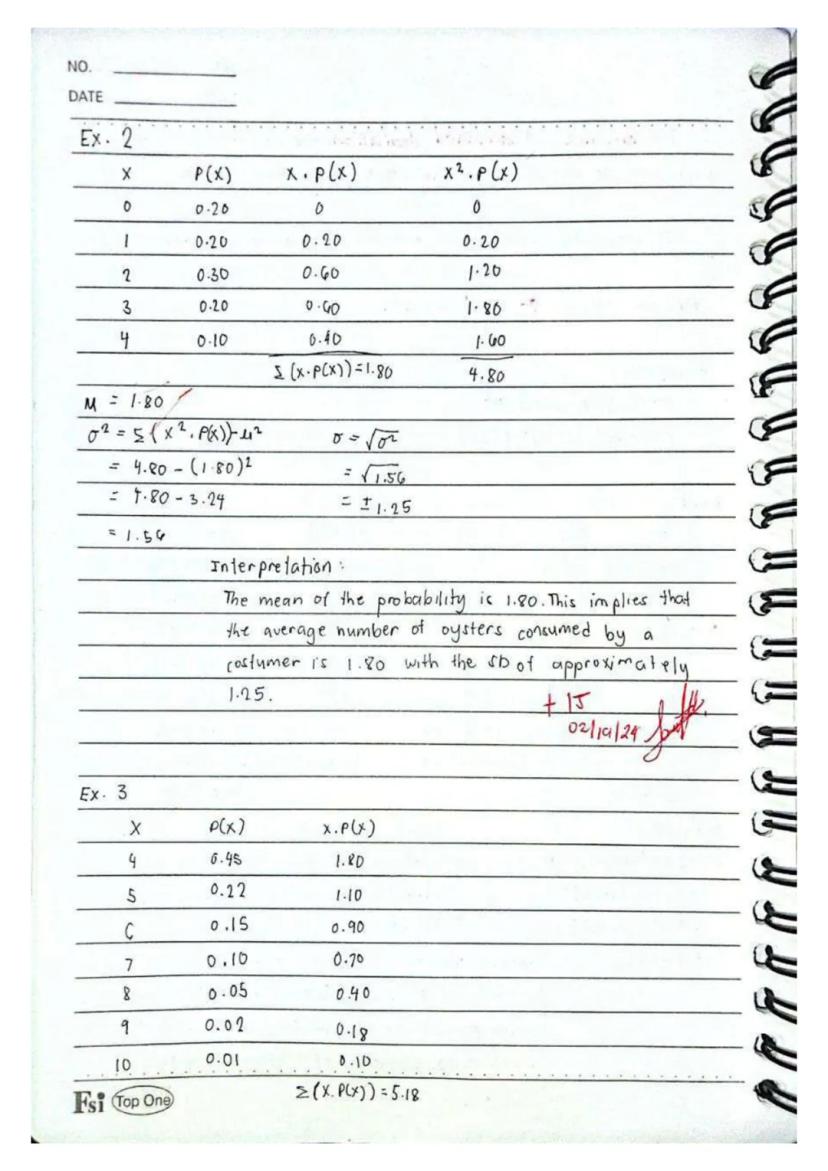 NO.
DATE
Ex. 2
X P(X) X . P(X) X² . P(X)
0 0.20 0 0
1 0.20 0.20 0.20
2 0.30 0.60 1.20
3 0.20 0.60 1.80
4 0.10 0.40 1.60
Σ (X.P(X)) = 1.80 4.80
M = 1.80
σ² = Σ (X² . P(X)) - μ² σ = √σ²
= 4.80 - (1.80)² = √1.56
= 4.80 - 3.24 = ± 1.25
= 1.56
Interpretation :
The mean of the probability is 1.80. This implies that
the average number of oysters consumed by a
costumer is 1.80 with the SD of approximately
1.25.
+ 15
02/19/24
Ex. 3
X P(X) X.P(X)
4 0.45 1.80
5 0.22 1.10
6 0.15 0.90
7 0.10 0.70
8 0.05 0.40
9 0.02 0.18
10 0.01 0.10
Σ (X. P(X)) = 5.18
Fsi Top One